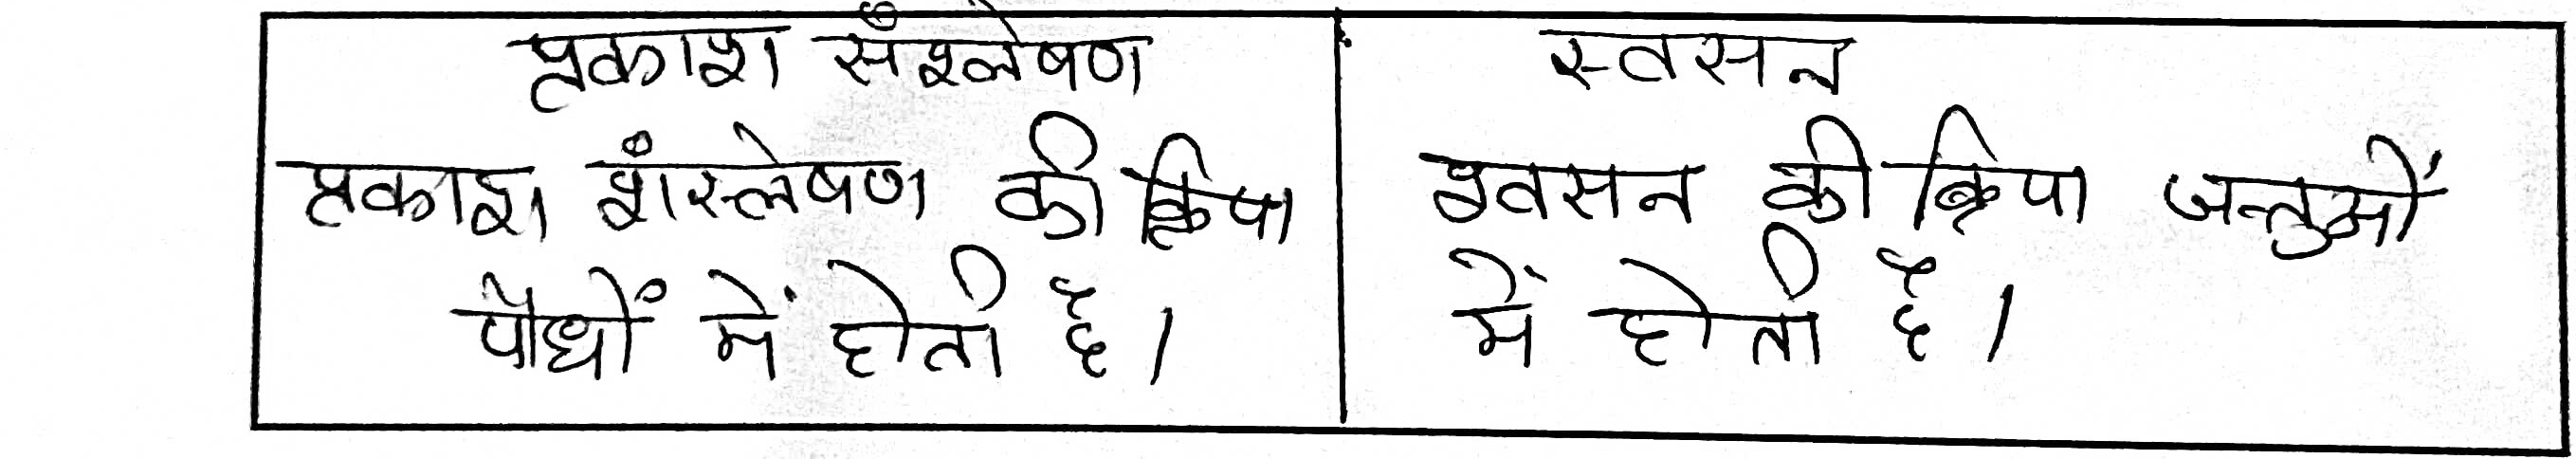 प्रकाश संश्लेषण
प्रकाश शंस्लेषण की क्रिया
पौधों में होती है।
स्वसन
श्वसन की क्रिया जन्तुओं
में होती है।